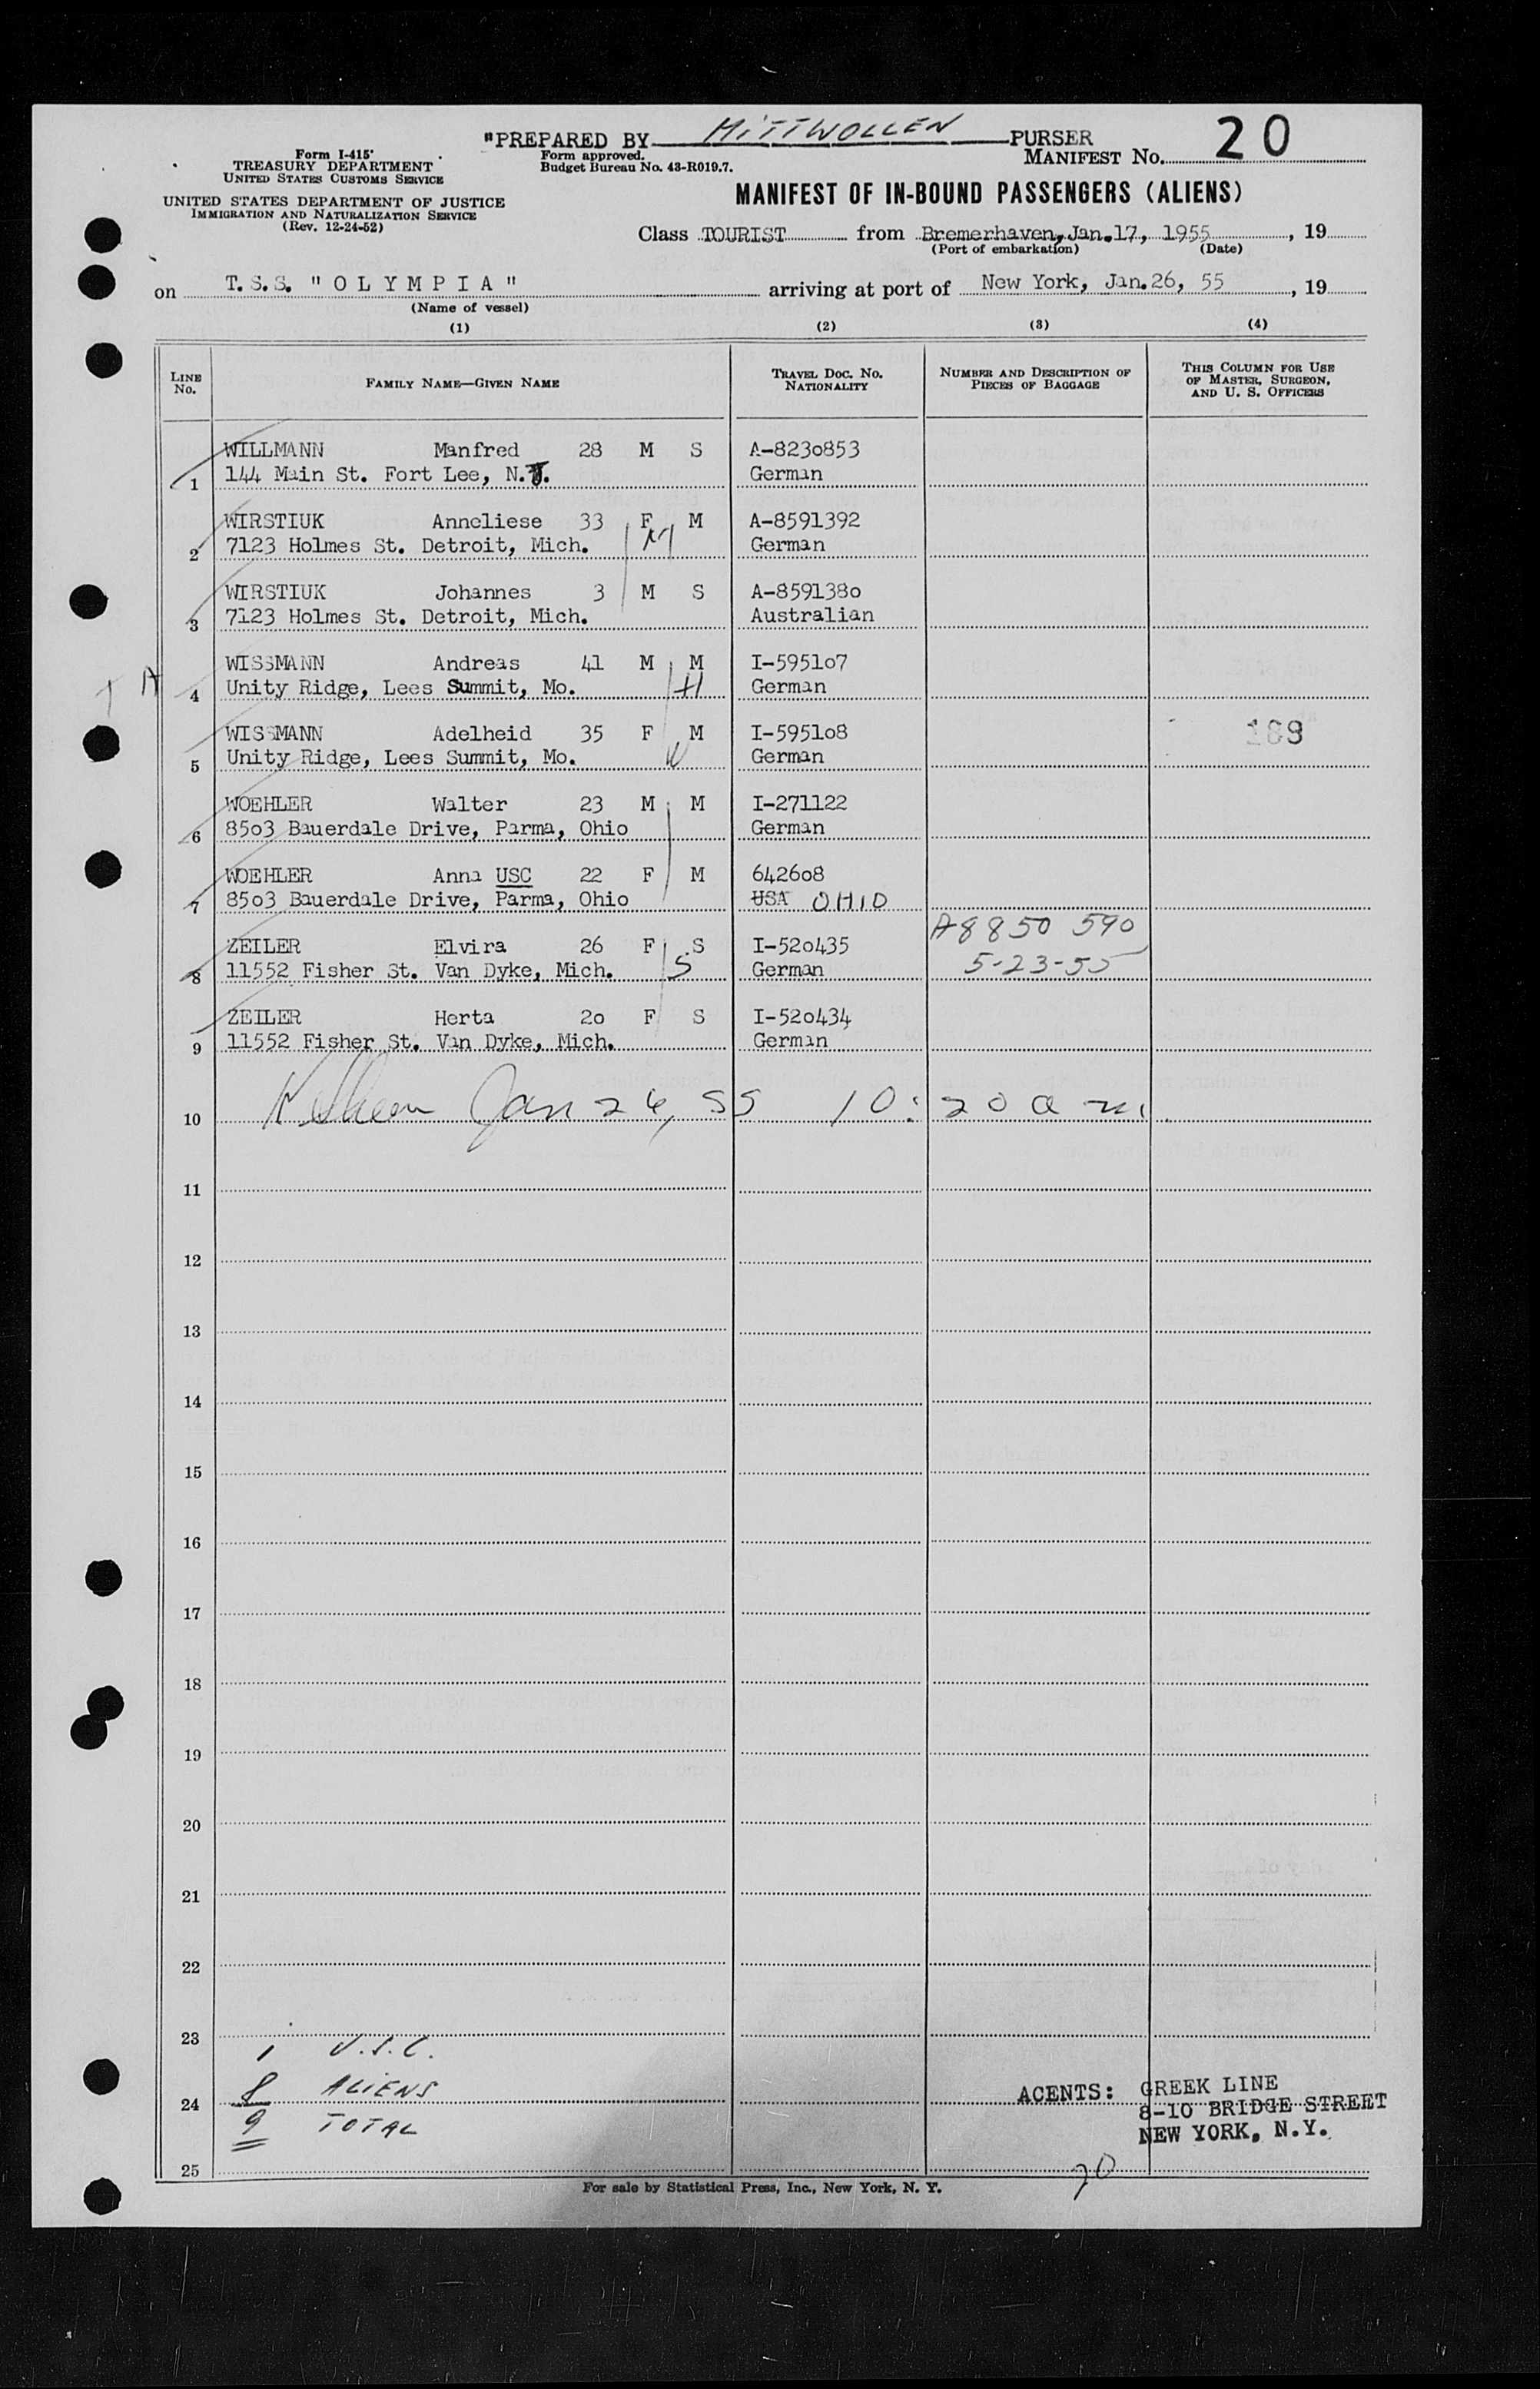 "PREPARED BY MITTWOLLEN PURSER
Form I-415
TREASURY DEPARTMENT
UNITED STATES CUSTOMS SERVICE
UNITED STATES DEPARTMENT OF JUSTICE
IMMIGRATION AND NATURALIZATION SERVICE
(Rev. 12-24-52)
Form approved.
Budget Bureau No. 43-R019.7.
MANIFEST NO. 20
MANIFEST OF IN-BOUND PASSENGERS (ALIENS)
Class TOURIST from Bremerhaven, Jan.17, 1955, 19
(Port of embarkation) (Date)
on T.S.S. "OLYMPIA" arriving at port of New York, Jan.26, 55, 19
(Name of vessel)
(1) (2) (3) (4)
LINE NO. FAMILY NAME—GIVEN NAME TRAVEL DOC. NO. NATIONALITY NUMBER AND DESCRIPTION OF PIECES OF BAGGAGE THIS COLUMN FOR USE OF MASTER, SURGEON, AND U. S. OFFICERS
WILLMANN Manfred 28 M S A-8230853
1 144 Main St. Fort Lee, N.J. German
WIRSTIUK Anneliese 33 F M A-8591392
2 7123 Holmes St. Detroit, Mich. M German
WIRSTIUK Johannes 3 M S A-8591380
3 7123 Holmes St. Detroit, Mich. Australian
WISSMANN Andreas 41 M M I-595107
4 Unity Ridge, Lees Summit, Mo. H German
WISSMANN Adelheid 35 F M I-595108
5 Unity Ridge, Lees Summit, Mo. W German
WOEHLER Walter 23 M M I-271122
6 8503 Bauerdale Drive, Parma, Ohio German
WOEHLER Anna USC 22 F M 642608
7 8503 Bauerdale Drive, Parma, Ohio USA OHIO
A8850 590
ZEILER Elvira 26 F S I-520435
8 11552 Fisher St. Van Dyke, Mich. S German 5-23-55
ZEILER Herta 20 F S I-520434
9 11552 Fisher St. Van Dyke, Mich. German
10 Jan 26, 55 10:20 a m.
11
12
13
14
15
16
17
18
19
20
21
22
23
1 U.S.C.
24 8 ALIENS
9 TOTAL
25
AGENTS: GREEK LINE
8-10 BRIDGE STREET
NEW YORK, N.Y.
20
For sale by Statistical Press, Inc., New York, N. Y.